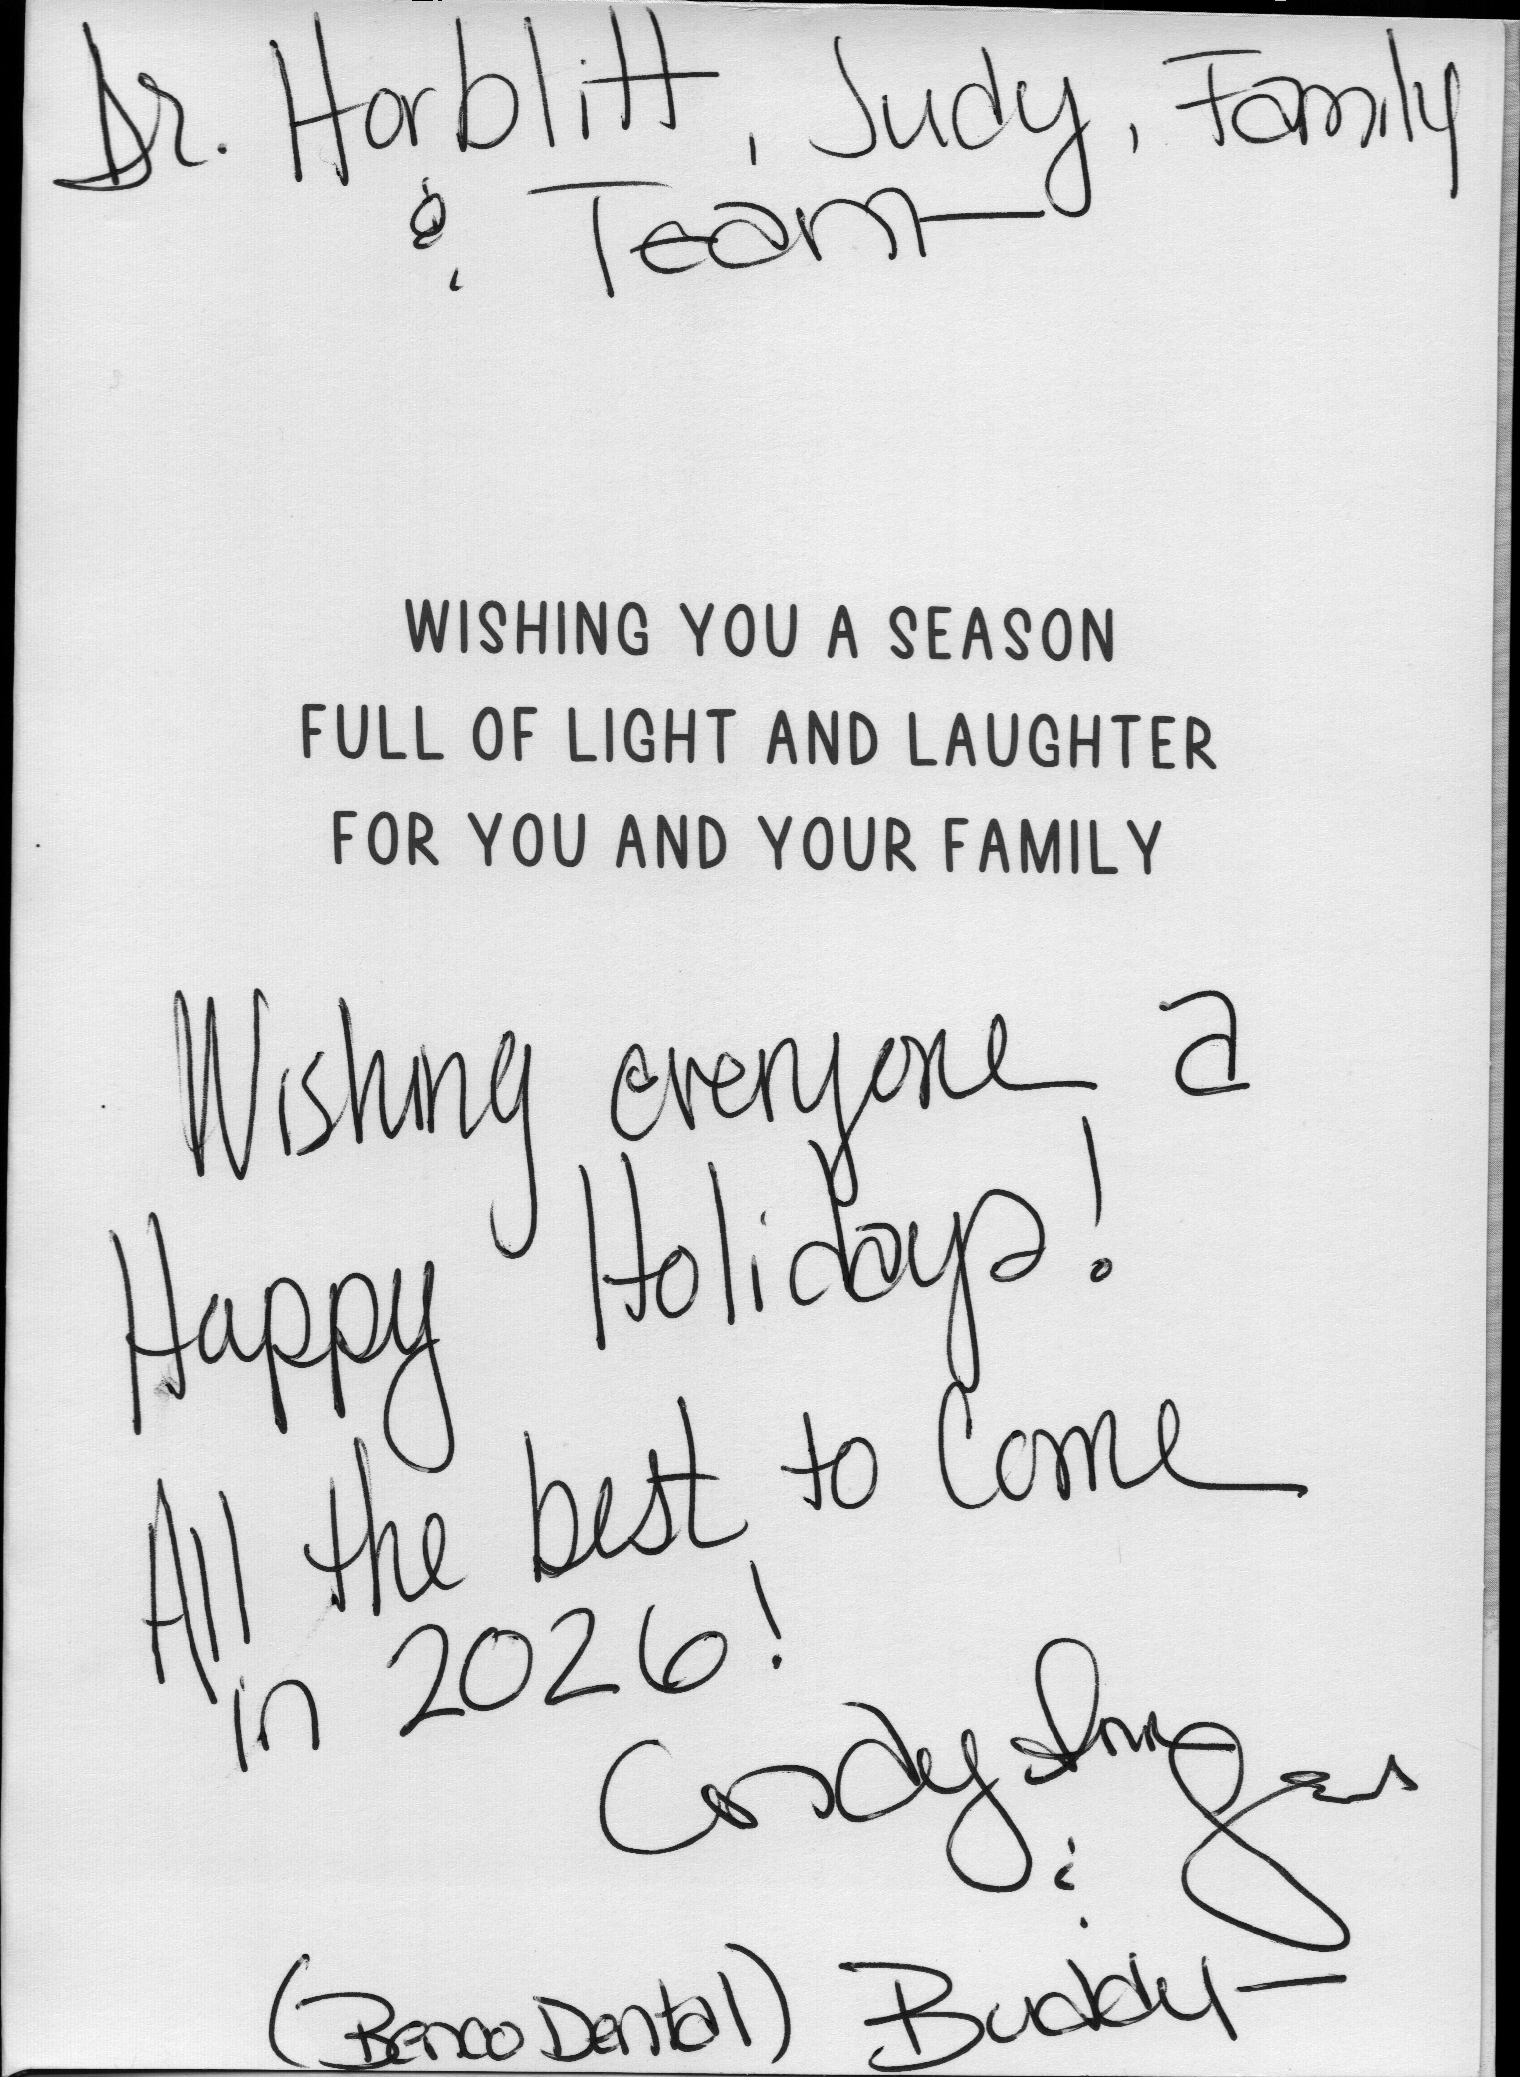 Dr. Horblitt, Judy, Family
& Team
WISHING YOU A SEASON
FULL OF LIGHT AND LAUGHTER
FOR YOU AND YOUR FAMILY
Wishing everyone a
Happy Holidays!
All the best to come
in 2026!
&
(Benco Dental) Buddy